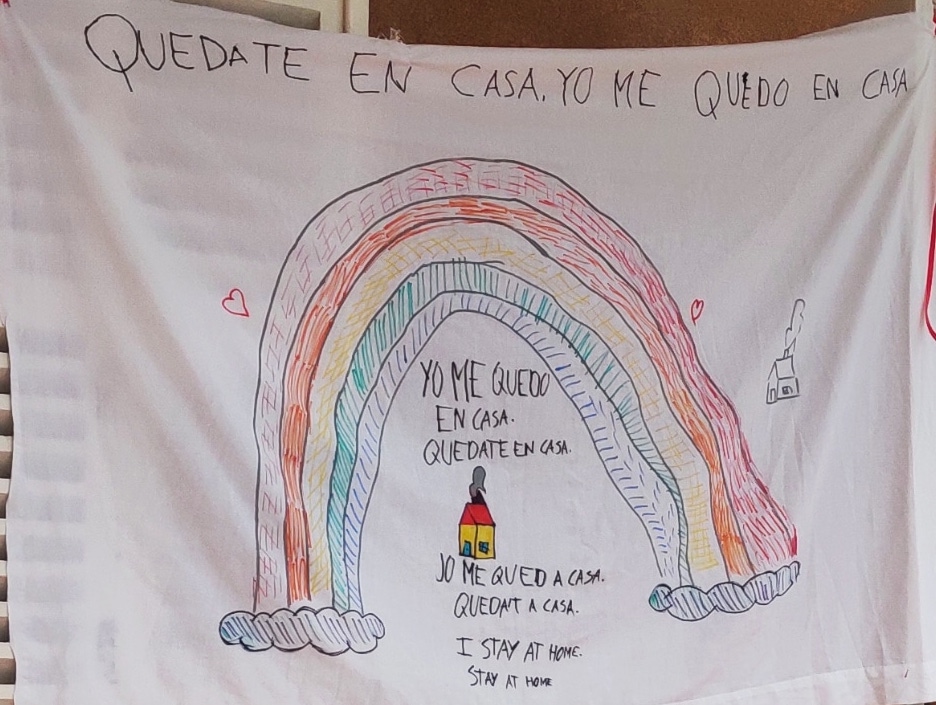 QUEDATE EN CASA. YO ME QUEDO EN CASA
YO ME QUEDO
EN CASA.
QUEDATE EN CASA.
JO ME QUED A CASA.
QUEDA'T A CASA.
I STAY AT HOME.
STAY AT HOME